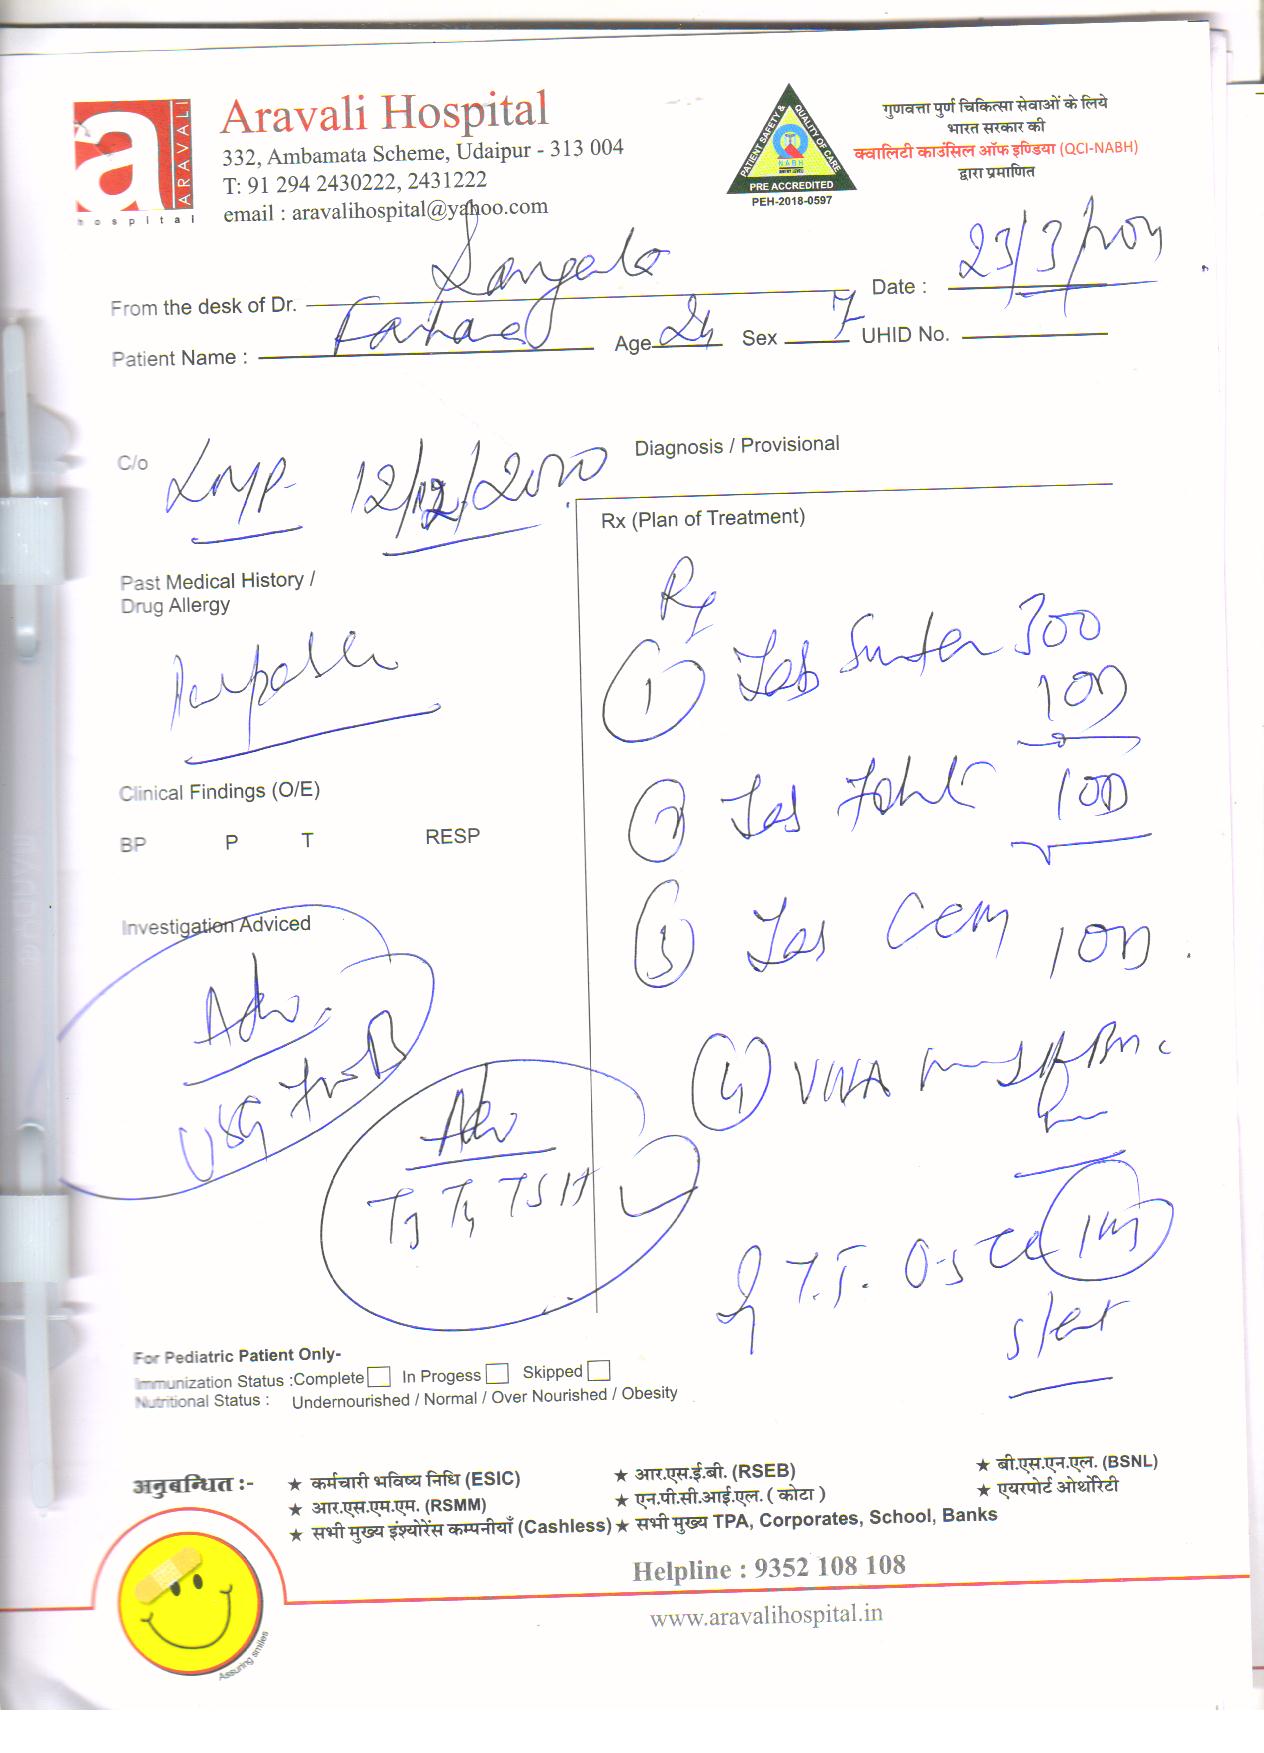 a
ARAVALI
hospital
Aravali Hospital
332, Ambamata Scheme, Udaipur - 313 004
T: 91 294 2430222, 2431222
email : aravalihospital@yahoo.com
PATIENT SAFETY & QUALITY OF CARE
NABH
PRE ACCREDITED
PEH-2018-0597
गुणवत्ता पुर्ण चिकित्सा सेवाओं के लिये
भारत सरकार की
क्वालिटी काउंसिल ऑफ इण्डिया (QCI-NABH)
द्वारा प्रमाणित
From the desk of Dr. Date : 23/3/
Patient Name : Age 24 Sex F UHID No.
C/o LMP 12/12/2020
Diagnosis / Provisional
Rx (Plan of Treatment)
Past Medical History /
Drug Allergy
Rx
① Tab 300
1OD
Clinical Findings (O/E)
BP P T RESP
② Tab 1OD
Investigation Adviced
③ Tab CCM 1OD
Adv.
USG
④
Adv
T3 T4 TSH
T.T. 0.5 IM
stat
For Pediatric Patient Only-
Immunization Status :Complete In Progess Skipped
Nutritional Status : Undernourished / Normal / Over Nourished / Obesity
अनुबन्धित :-
★ कर्मचारी भविष्य निधि (ESIC) ★ आर.एस.ई.बी. (RSEB) ★ बी.एस.एन.एल. (BSNL)
★ आर.एस.एम.एम. (RSMM) ★ एन.पी.सी.आई.एल. ( कोटा ) ★ एयरपोर्ट ओथोरिटी
★ सभी मुख्य इंश्योरेंस कम्पनीयाँ (Cashless) ★ सभी मुख्य TPA, Corporates, School, Banks
Helpline : 9352 108 108
www.aravalihospital.in
Assuring smiles